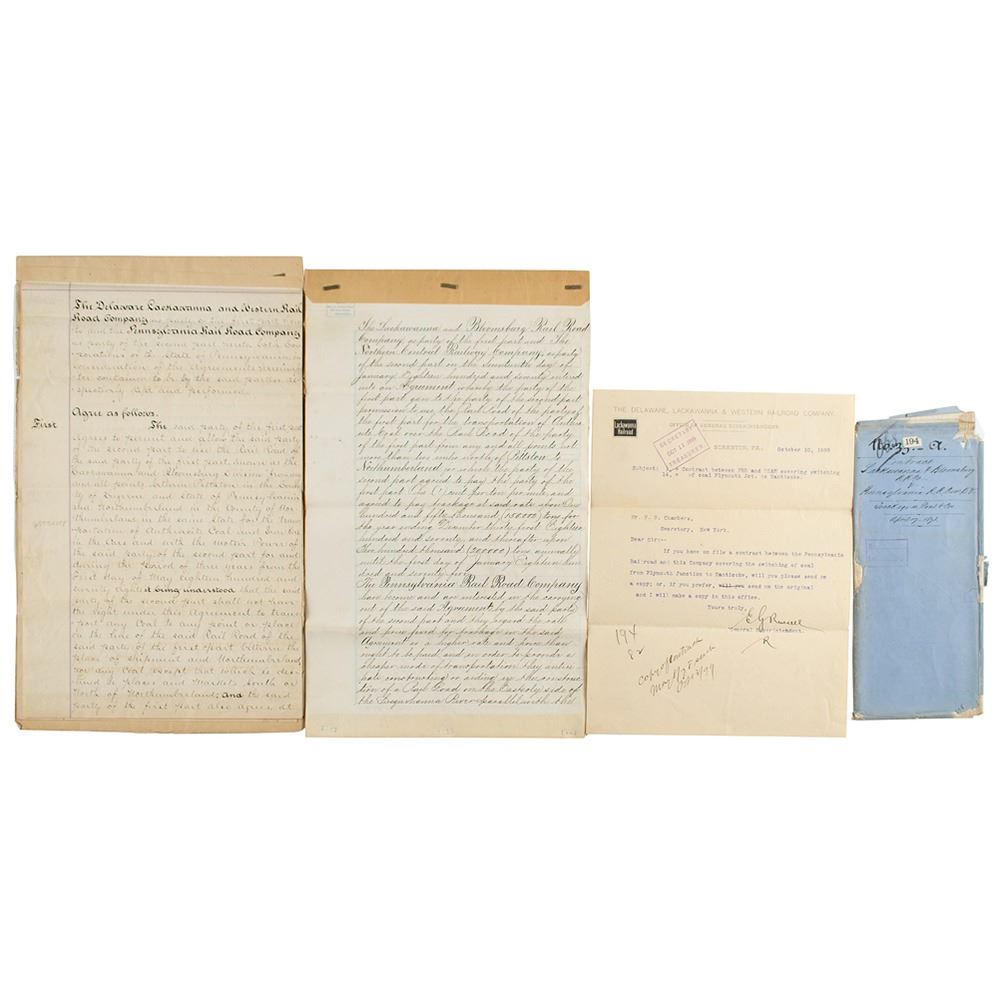 The Delaware Lackawanna and Western Rail
Road Company as party of the first part
and the Pennsylvania Rail Road Company
as party of the second part
of the State of Pennsylvania in
consideration of the Agreements herein
contained to be by the said parties
and performed.
Agree as follows.
First
The said party of the first part
Agrees to permit and allow the said party
of the second part to use the Rail Road of
the said party of the first part, known as the
Lackawanna and Bloomsburg Division from
and all points between Pittston in the County
of Luzerne and State of Pennsylvania
and Northumberland in the County of Nor-
thumberland in the same State for the Trans-
portation of Anthracite Coal and
in the Cars and with the Motive Power of
the said party of the second part for and
during the period of three years from the
First day of May eighteen hundred and
seventy eight, it being understood that the said
party of the second part shall not have
the right under this Agreement to trans-
port any Coal to any point or place
on the line of the said Rail Road of the
said party of the first part between the
place of shipment and Northumberland
nor any Coal except that which is des-
tined to places and Markets South or
North of Northumberland; And the said
party of the first part also agrees, at
The Lackawanna and Bloomsburg Rail Road
Company, as party of the first part and The
Northern Central Railway Company, as party
of the second part on the Nineteenth day of
January Eighteen hundred and seventy entered
into an Agreement whereby the party of the
first part gave to the party of the second part
permission to use the Rail Road of the party of
the first part for the transportation of Anthra-
cite Coal over the Rail Road of the party
of the first part from any and all points not
more than two miles north of Pittston to
Northumberland in which the party of the
second part agreed to pay the party of the
first part One Cent per ton per mile, and
agreed to pay trackage at said rate upon One
hundred and fifty thousand (150.000) tons for
the year ending December thirty first Eighteen
hundred and seventy, and thereafter upon
Two hundred thousand (200000) tons annually
until the first day of January Eighteen hun-
dred and seventy five
The Pennsylvania Rail Road Company
have become and are interested in the carrying
out of the said Agreement by the said party
of the second part and they regard the rate
and price fixed for trackage in the said
Agreement as a higher rate and price than
ought to be paid and in order to provide a
cheaper mode of transportation they antici-
pate constructing or aiding in the construc-
tion of a Rail Road on the Easterly side of
the Susquehanna River parallel with the Rail
THE DELAWARE, LACKAWANNA & WESTERN RAILROAD COMPANY.
Lackawanna
Railroad
OFFICE OF GENERAL SUPERINTENDENT.
SECRETARY
OCT 11 1899
TREASURER
SCRANTON, PA. October 10, 1899
Subject: Contract between PRR and DL&W covering switching
of coal Plymouth Jct. to Nanticoke.
Mr. F. F. Chambers,
Secretary, New York.
Dear Sir:-
If you have on file a contract between the Pennsylvania
Railroad and this Company covering the switching of coal
from Plymouth Junction to Nanticoke, will you please send me
a copy; or, if you prefer, will you send me the original
and I will make a copy in this office.
Yours truly,
E G Russell
General Superintendent.
R
194
82
copy of contract
194
A.
Contract
Lackawanna & Bloomsburg
R.R. Co.
Pennsylvania R.R. Co.